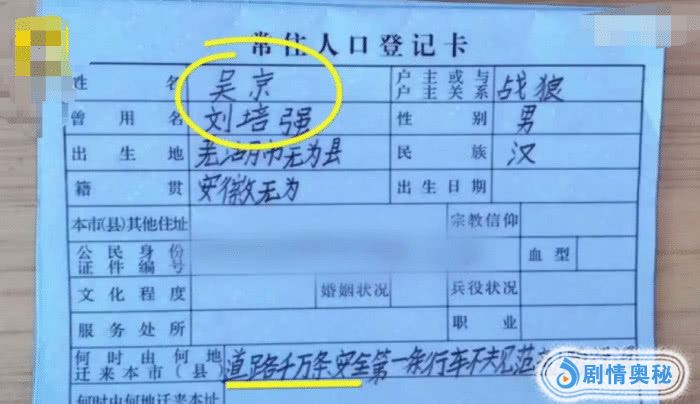 常住人口登记卡
姓名 吴京 户主或与户主关系 战狼
曾用名 刘培强 性别 男
出生地 芜湖市无为县 民族 汉
籍贯 安徽无为 出生日期
本市(县)其他住址 宗教信仰
公民身份证件编号 血型
文化程度 婚姻状况 兵役状况
服务处所 职业
何时由何地迁来本市(县) 道路千万条安全第一条行车不夫见范
何时由何地迁来本址
剧情奥秘